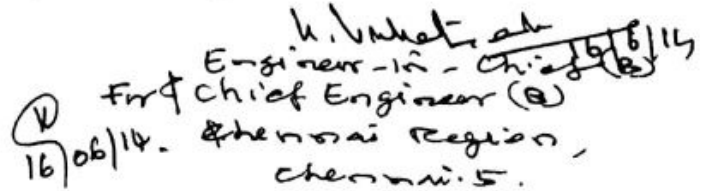 16/6/14
Engineer-in-Chief (B)
For & Chief Engineer (B)
16/06/14. Chennai Region,
Chennai.5.